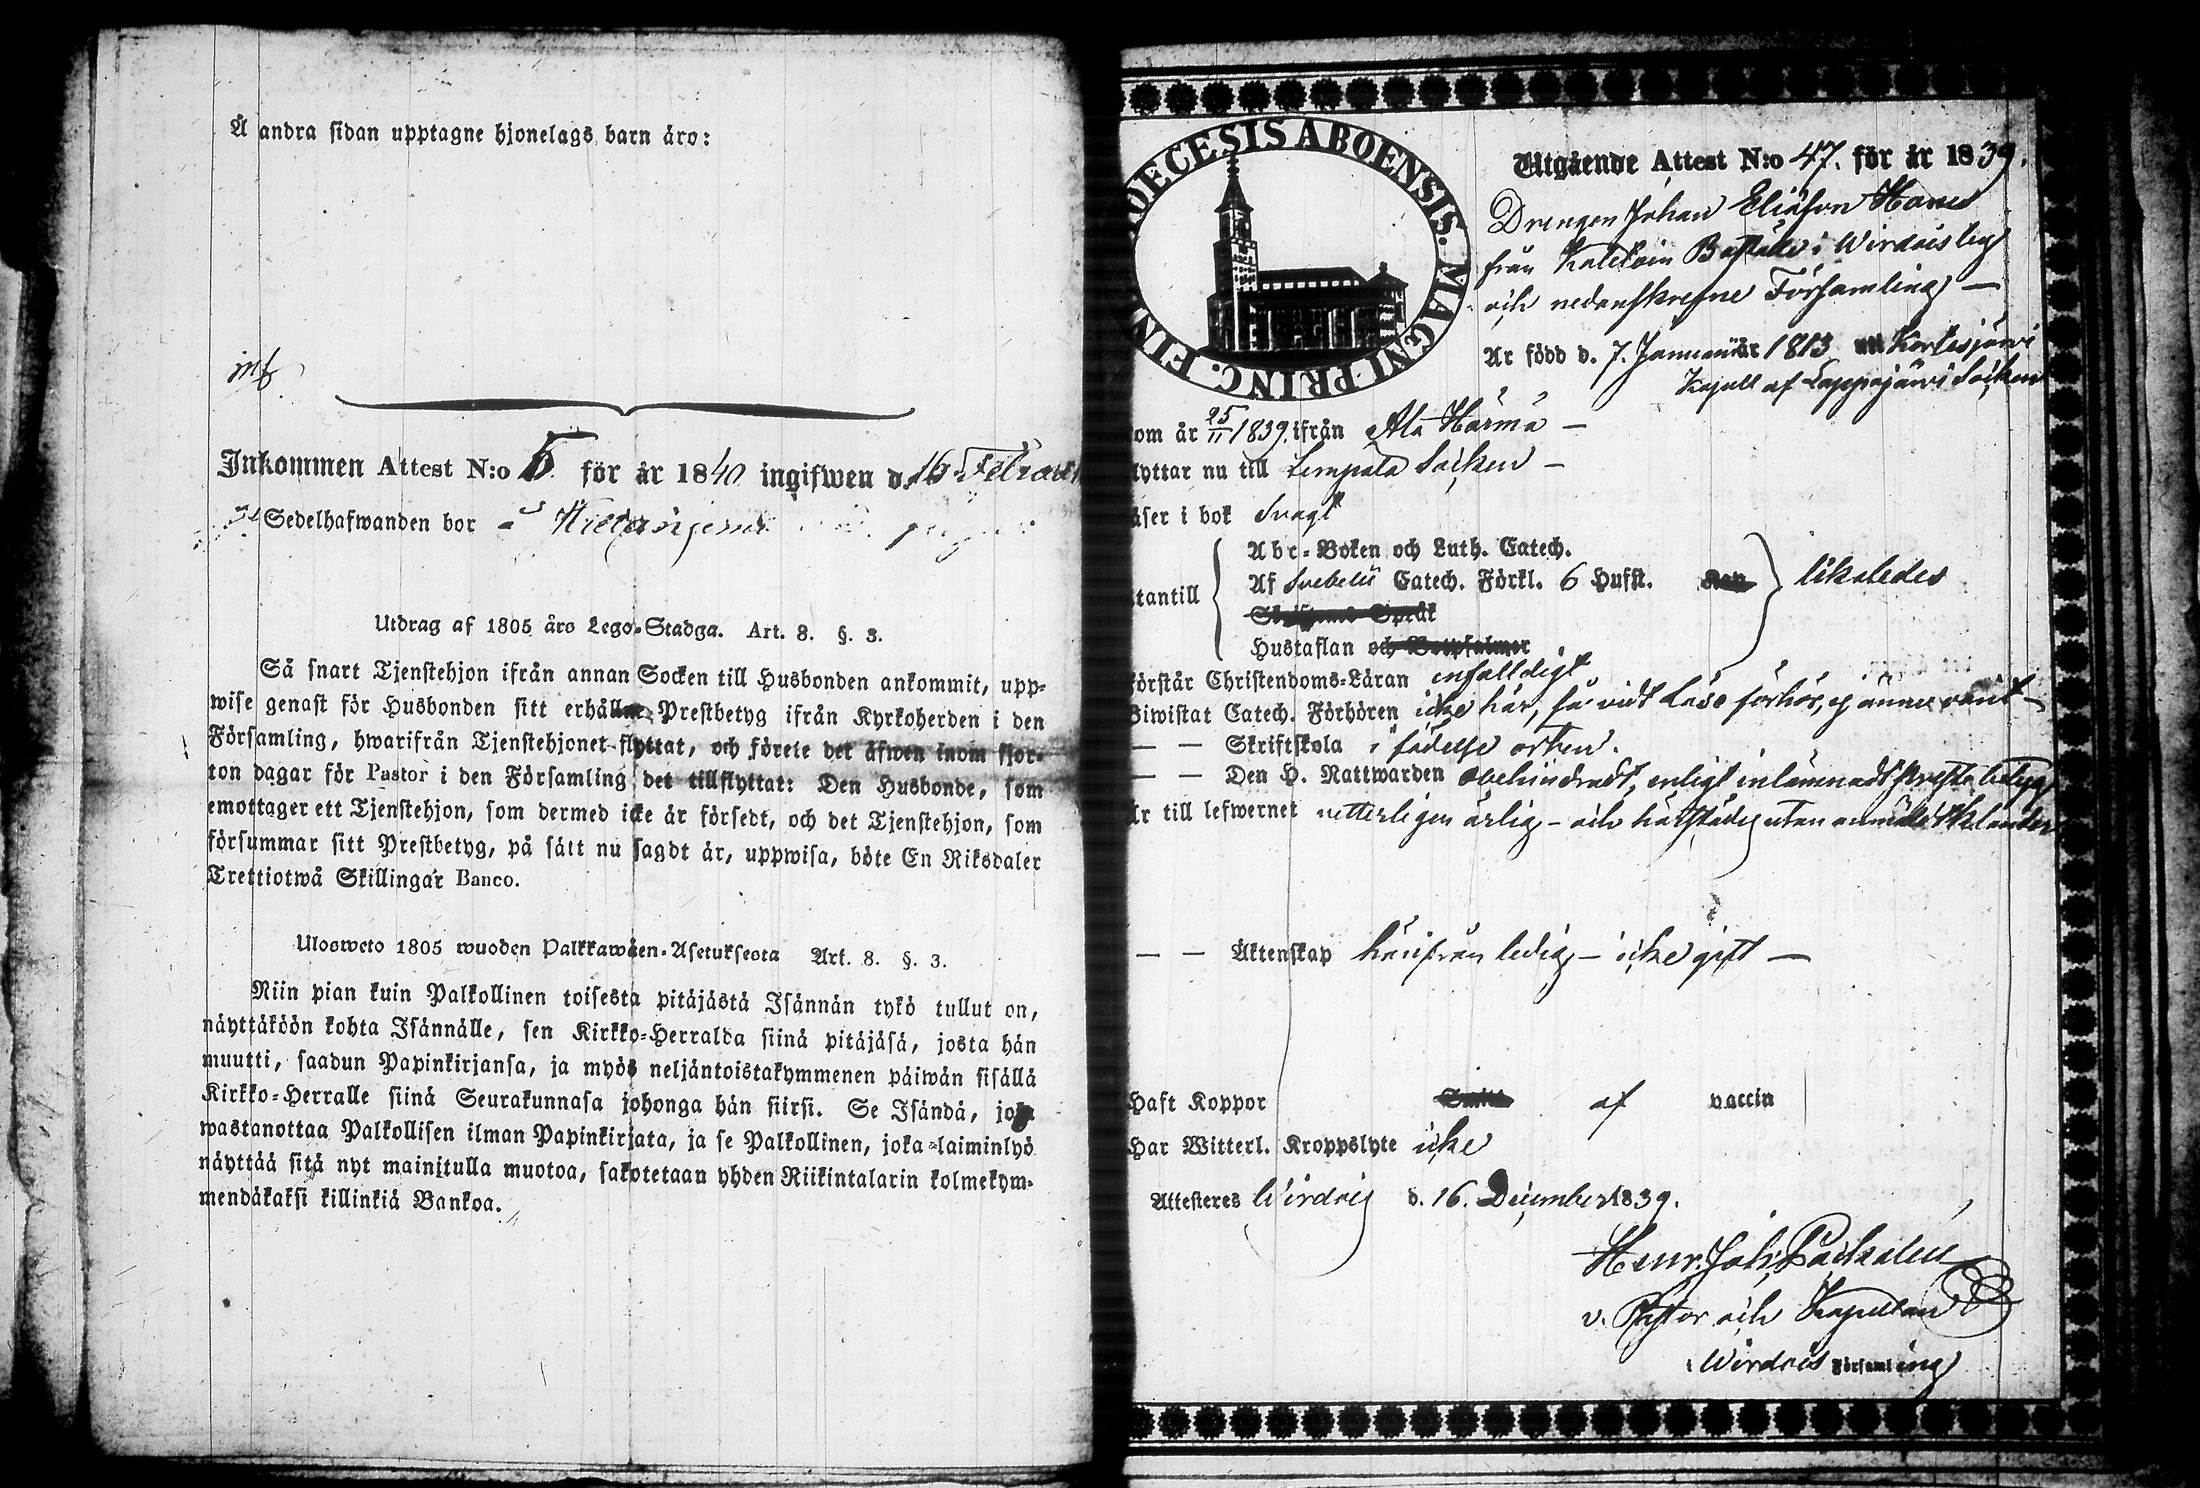 Å andra sidan upptagne hjonelags barn äro:
Inkommen Attest N:o 5 för år 1840 ingifwen d. 16 Februar
Sedelhafwanden bor
Utdrag af 1805 års Lego-Stadga. Art. 8. §. 3.
Så snart Tjenstehjon ifrån annan Socken till Husbonden ankommit, upp-
wise genast för Husbonden sitt erhållne Prestbetyg ifrån Kyrkoherden i den
Församling, hwarifrån Tjenstehjonet flyttat, och förete det äfwen inom fjor-
ton dagar för Pastor i den Församling det tillflyttat: Den Husbonde, som
emottager ett Tjenstehjon, som dermed icke är försedt, och det Tjenstehjon, som
försummar sitt Prestbetyg, på sätt nu sagdt är, uppwisa, böte En Riksdaler
Trettiotwå Skillingar Banco.
Ulosweto 1805 wuoden Palkkawäen-Asetuksesta Art. 8. §. 3.
Niin pian kuin Palkollinen toisesta pitäjästä Isännän tykö tullut on,
näyttäköön kohta Isännälle, sen Kirkko-Herralda siinä pitäjäsä, josta hän
muutti, saadun Papinkirjansa, ja myös neljäntoistakymmenen päiwän sisällä
Kirkko-Herralle siinä Seurakunnasa johonga hän siirsi. Se Isändä, joka
wastanottaa Palkollisen ilman Papinkirjata, ja se Palkollinen, joka laiminlyö
näyttää sitä nyt mainitulla muotoa, sakotetaan yhden Riikintalarin kolmekym-
mendäkaksi killinkiä Bankoa.
DIOECESIS ABOENSIS. MAGNI PRINC. FIN
Utgående Attest N:o 47. för år 1839.
Drengen Johan Eliasson Hanes
från Boställe i Wirdois
och nedanskrefne Församling —
Är född d. 7. Januari år 1813 Kortesjärvi
Kapell af Lappajärvi Socken
om år 25/11 1839. ifrån Ala Härmä —
lyttar nu till Lempola Socken —
äser i bok Svagt
tantill Abc-Boken och Luth. Catech.
Af Svebelii Catech. Förkl. 6 Hufst. likaledes
Hustaflan och Botpsalmer
örstår Christendoms-Läran enfaldigt
Biwistat Catech. Förhören icke här, så vidt Läse förhör, ej ännu varit —
— — Skriftskola i födelse orten.
— — Den H. Nattwarden obehindradt, enligt inlämnadt Prestabetyg
Är till lefwernet ärlig — och härstädes utan anmäldt
— — Äktenskap härifrån ledig — icke gift —
Haft Koppor af vaccin
Har Witterl. Kroppslyte icke
Attesteres Wirdois d. 16. December 1839.
Henr. Joh.
v. Pastor och Kapellan
i Wirdois Församling